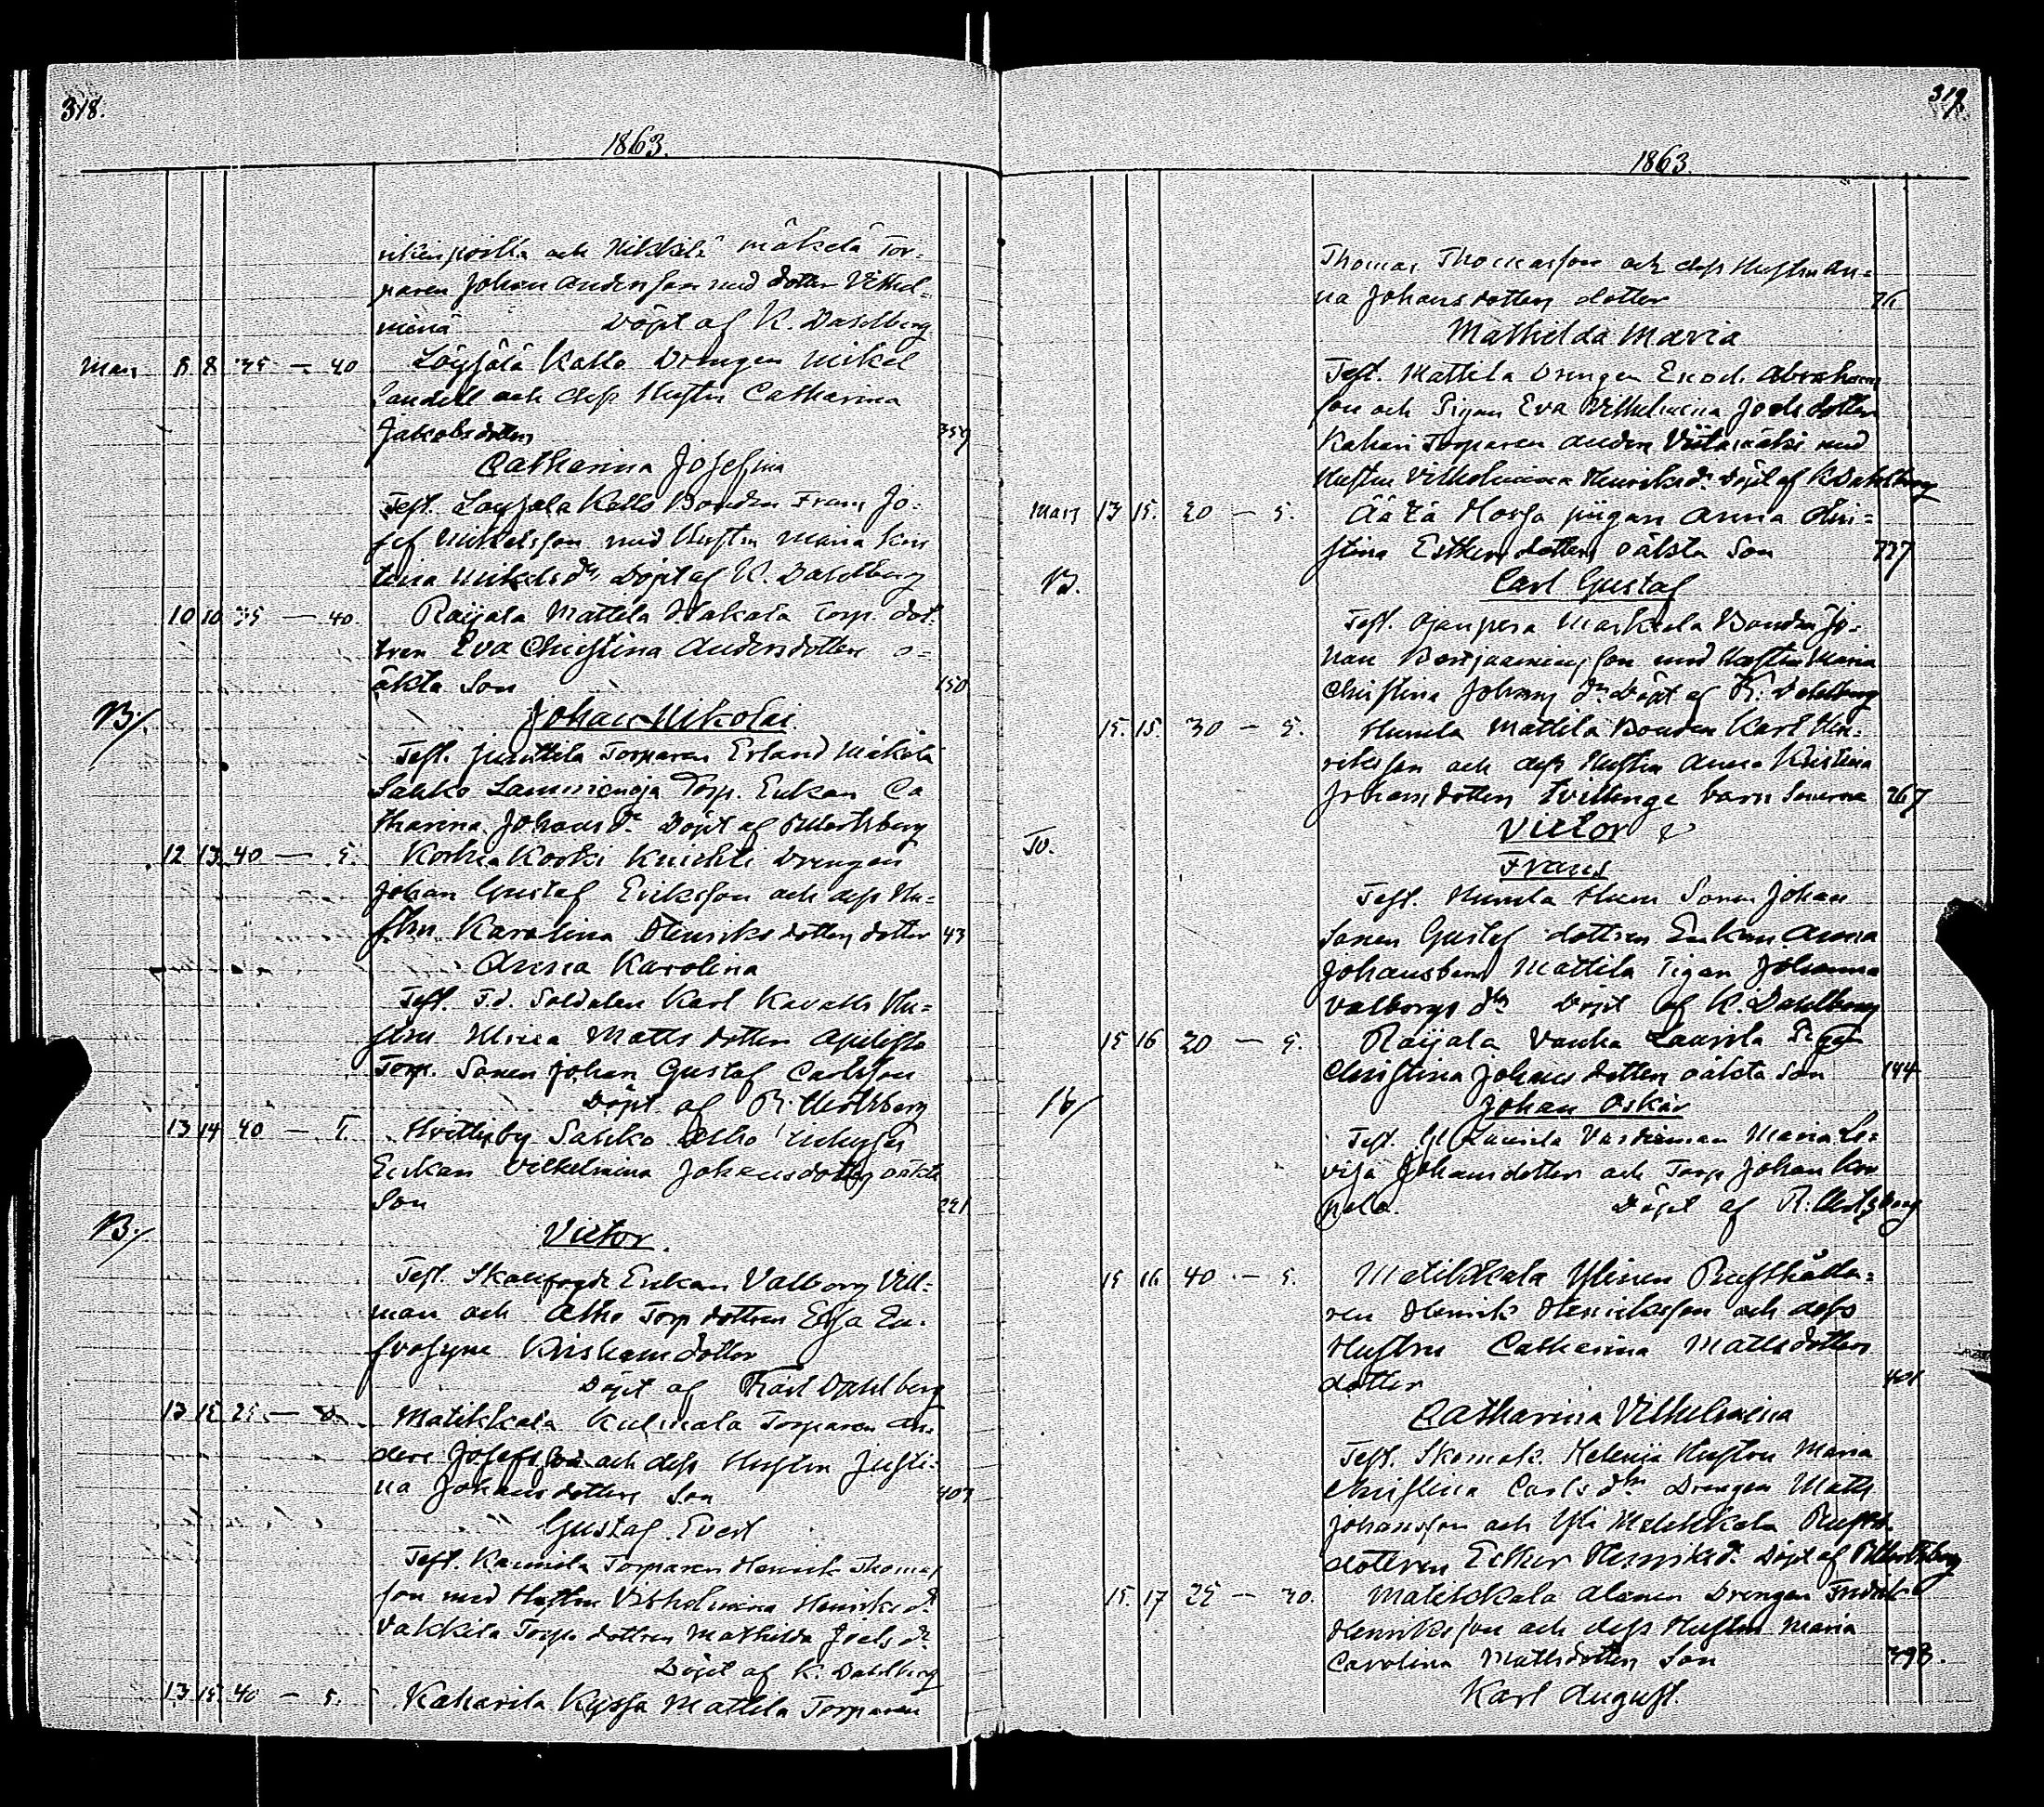 318.
1863.
och Nikkilä mäkelä Tor-
paren Johan Andersson med dotter Vilhel-
mina Döpt af K. Dahlberg
Mars 8 8 35 — 40 Löyjälä Kallo Drengen Mikel
och dess Hustru Catharina
Jakobsdotters 359
Catharina Josefina
Test. Loyjala Kallo Bonden Frans Jo-
sef Mikelsson med Hustru Maria Kris
tina Mikelsdr Döpt af K. Dahlberg
10 10 35 — 40. Raijala Mattila Torp. dot-
tren Eva Christina Andersdotters o-
äkta Son 150
B/. Johan Nikolai
Test. Junttila Torparen Erland Mäkelä
Sahko Lamminoja Torp. Enkan Ca
tharina Johansdr Döpt af R: Hertzberg
12 13 40 — 5. Korkia Koski Knichti Drengen
Johan Gustaf Eriksson och dess Hu-
stru Karolina Henriksdotters dotter 43
Anna Karolina
Test. F.d. Soldaten Karl Hu-
stru Matts dotter
Torp. Sonen Johan Gustaf Carlsson
Döpt af R: Hertzberg
13 14 40 — 5. Sahko Alho
Enkan Vilhelmina Johansdotters oäkta
Son 221
B/. Victor.
Test. Enkan Valborg Vill-
man och Alho Torp dottren Eva Eu-
frosyne dotter
Döpt af Karl Dahlberg
13 15 25 — Matikkala Kulmala Torparen An-
ders Josefsson och dess Hustru Justi-
na Johansdotters Son 407
Gustaf Evert
Test. Kaunela Torparen Henrik Thomas
son med Hustru Vilhelmina Henriksdr
Vakkila Torp. dottren Mathilda Joelsdr
Döpt af K. Dahlberg
13 15 40 — 5. Kaharila Kyssa Mattila Torparen
319.
1863.
Thomas Thomasson och dess Hustru An-
na Johansdotters dotter 26
Mathilda Maria
Test. Mattila Drengen Enok Abrahams
son och Pigan Eva Vilhelmina Joelsdotter
Kahari Torparen Anders Viitamäki med
Hustru Vilhelmina Henriksdr Döpt af K Dahlberg
Mars 13 15. 20 — 5. Horja pigan Anna Kri-
stina Esthersdotters oäkta Son 727
B. Carl Gustaf
Test. Ojanpera Markula Bonden Jo-
han son med Hustru Maria
Christina Johansdr Döpt af K. Dahlberg
15. 15. 30 — 5. Hunila Mattila Bonden Karl Hen-
riksson och dess Hustru Anna Kristina
Johansdotters tvillinge barn Sönerna 267
Tv. Victor
Frans
Test. Hunila Sonen Johan
Sonen Gustaf dottren Enkan Anna
Mattila Pigan Johanna
Valborgsdr Döpt af K. Dahlberg
15 16 20 — 5. Raijala Vanha Laurila Pigan
Christina Johans dotters oäkta Son 144
B/ Johan Oskar
Test. Laurila Maria Lo-
visa Johansdotter och Torp Johan
Döpt af R: Hertzberg
15 16 40 — 5. Matikkala Ylinen Rusthålla-
ren Henrik Henriksson och dess
Hustru Catharina Mattsdotters
dotter 401
Catharina Vilhelmina
Test. Skomak. Helenii Hustru Maria
Christina Carlsdtr Drengen Matts
Johansson och Yli Matikkala Rusth.
dottren Esther Henriksdr Döpt af R Hertzberg
15. 17 25 — 30. Matikkala Alanen Drengen Fredrik
Henriksson och dess Hustru Maria
Carolina Mattsdotters Son 393.
Karl August.